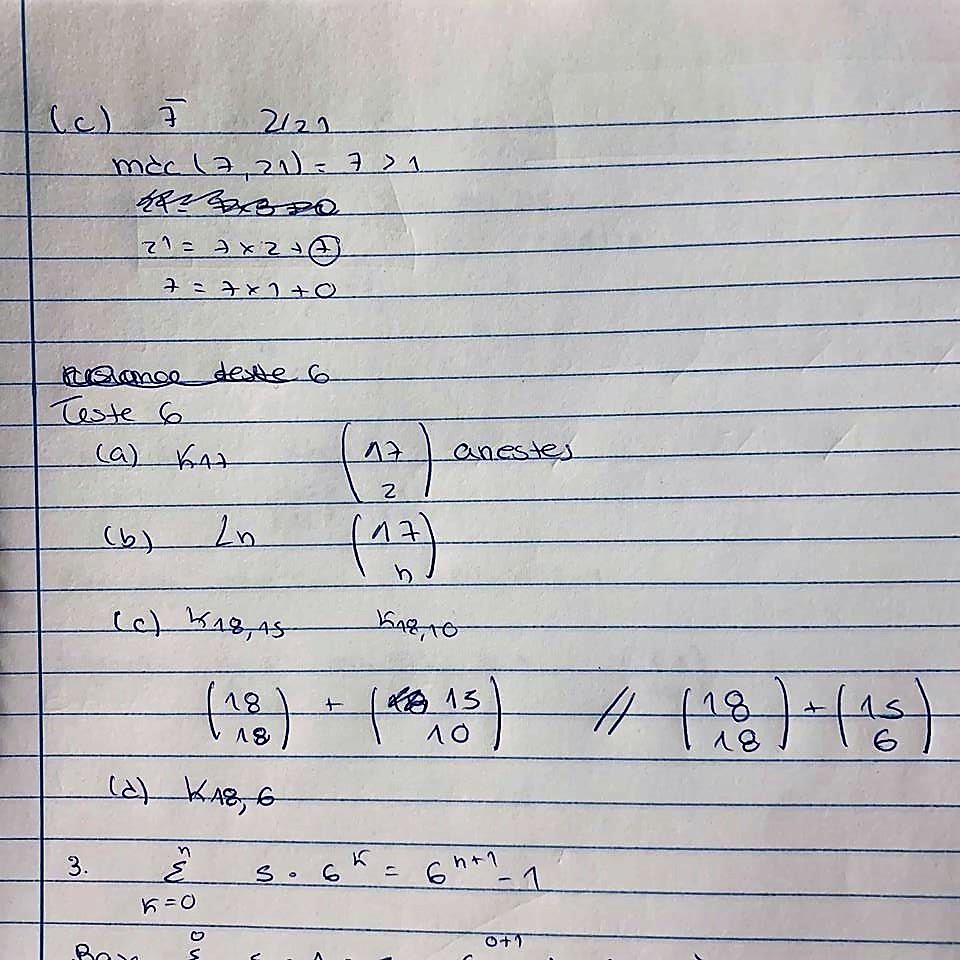 (c) 7̄ 2/21
mdc (7, 21) = 7 > 1
21 = 7 x 2 + 7
7 = 7 x 1 + 0
teste 6
Teste 6
(a) K17 (17 2) arestas
(b) Ln (17 n)
(c) K18,15 K18,10
(18 18) + (15 10) // (18 18) + (15 6)
(d) K18,6
3. n Σ k=0 5 . 6^k = 6^n+1 - 1
0 0+1